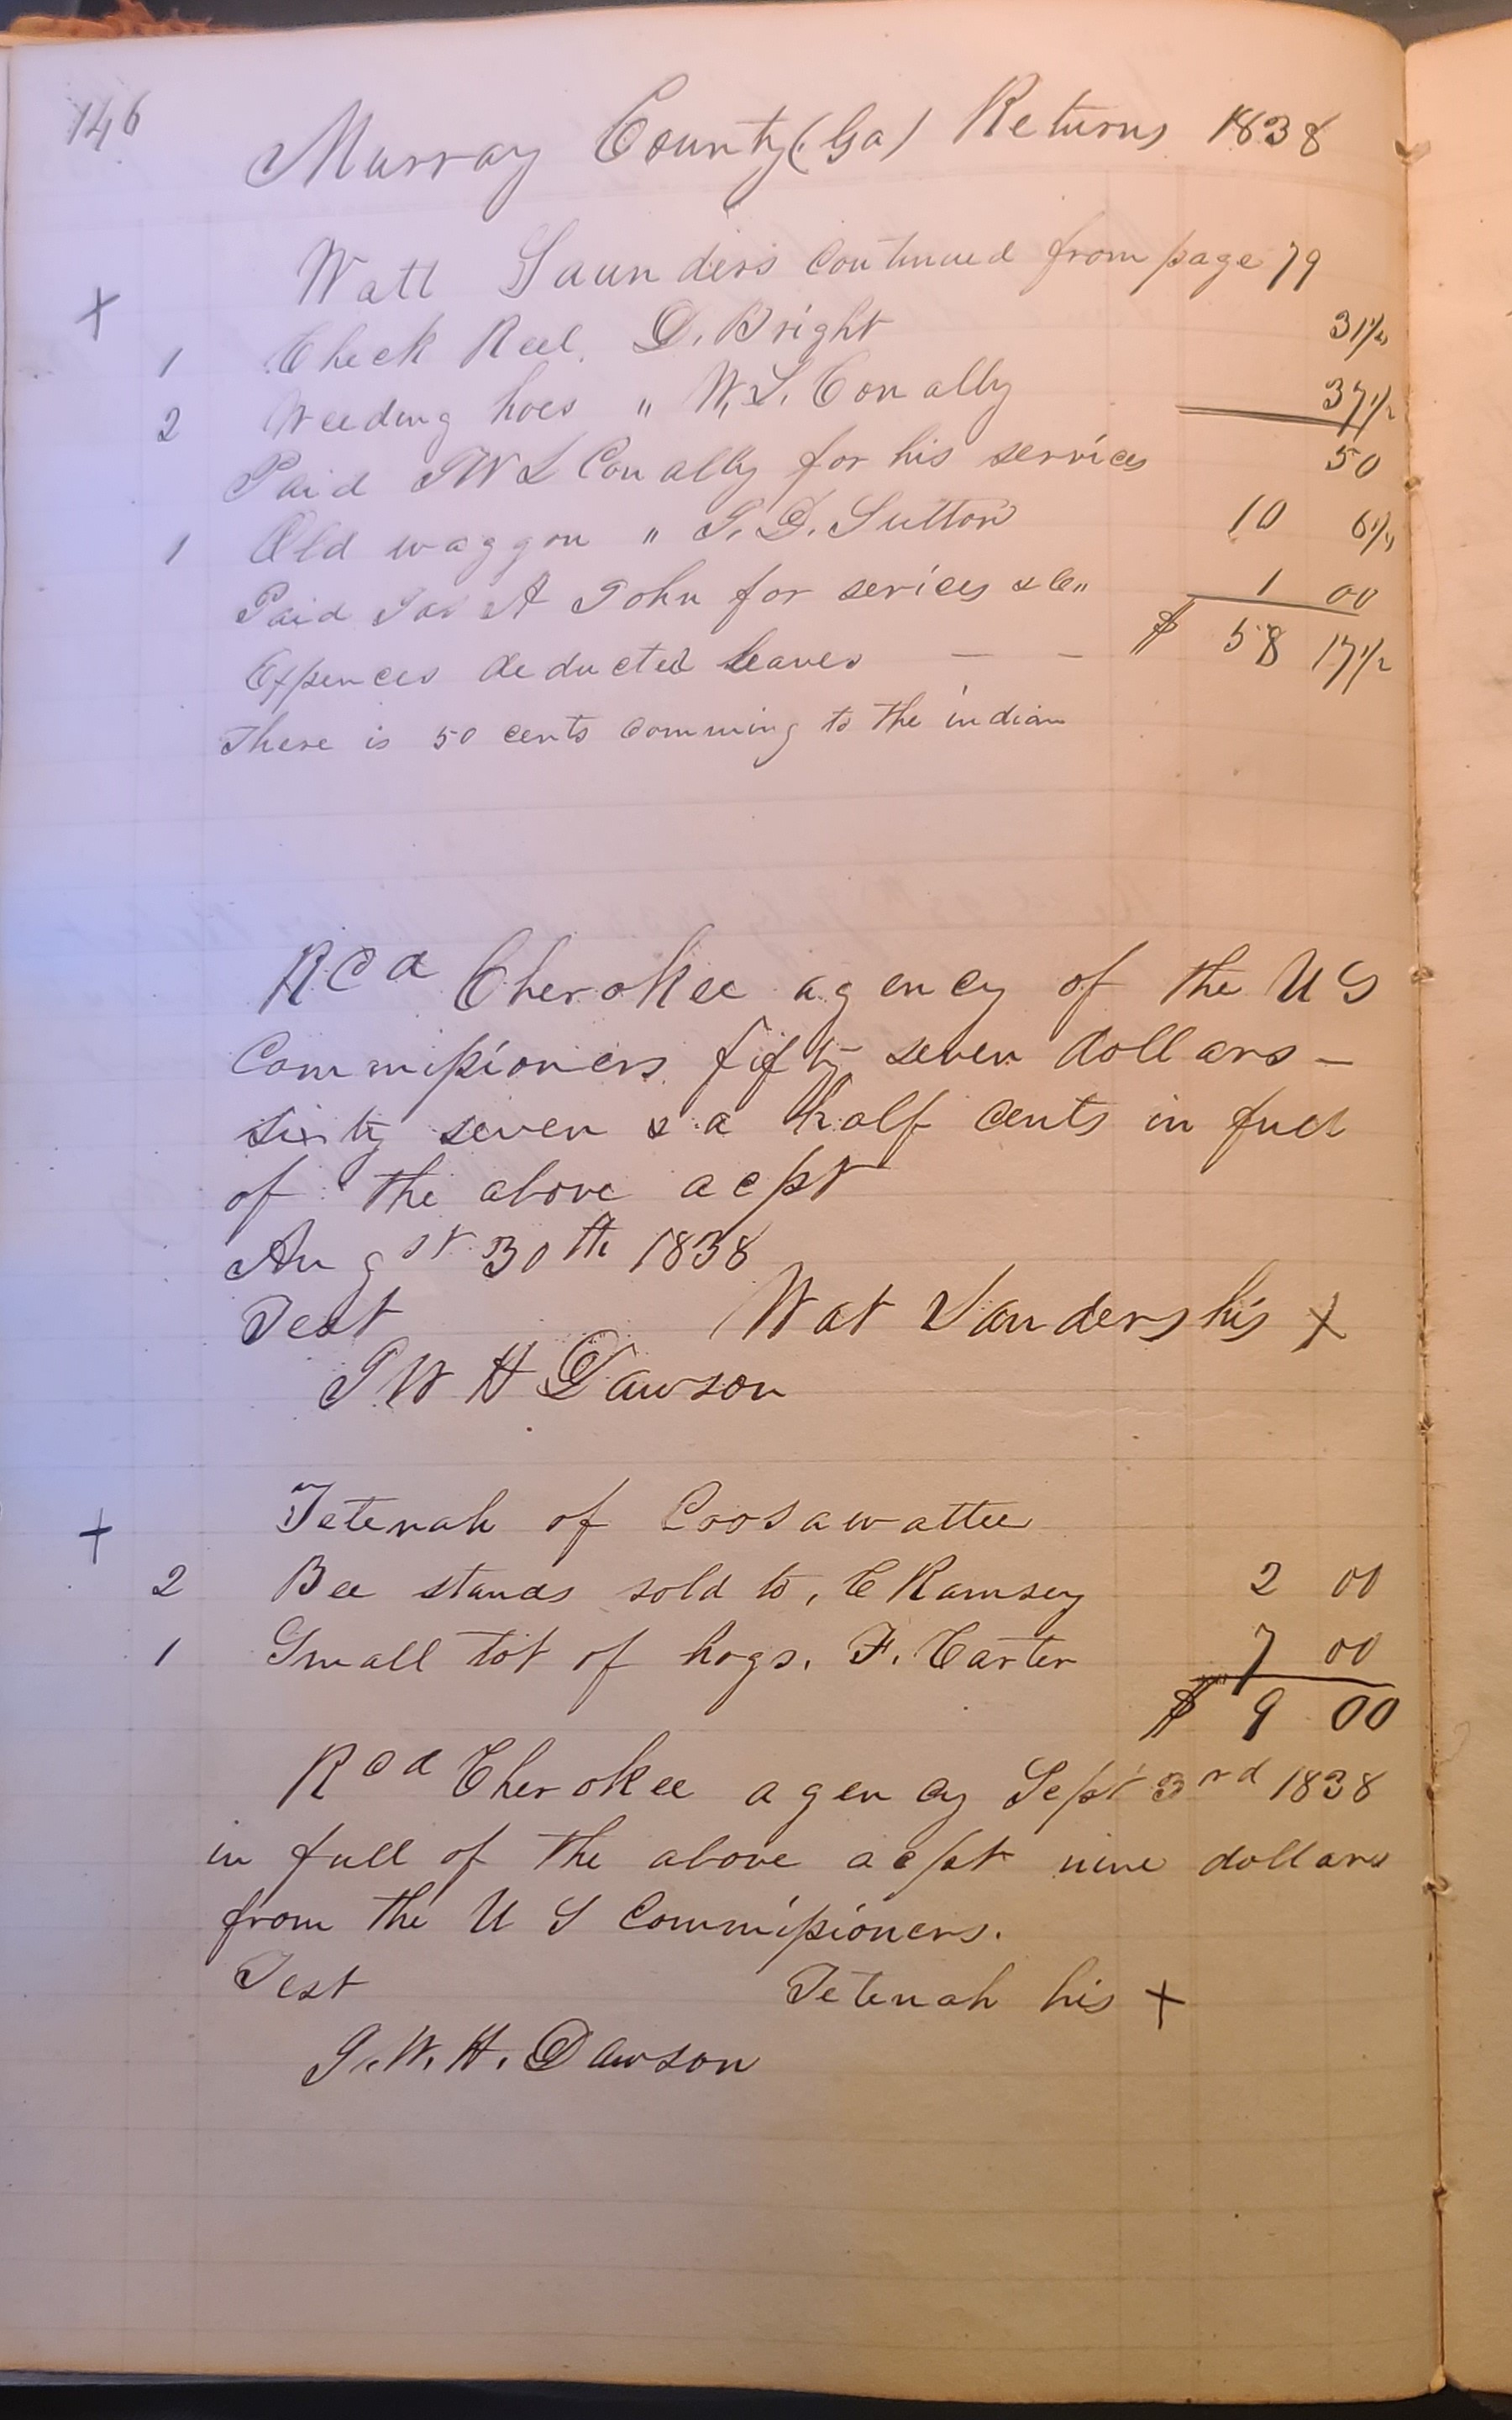 146
Murray County (Ga) Returns 1838
Watt Saunders Continued from page 79
+
1 Check Reel. D. Bright 31 1/2
2 Weeding hoes " W. L. Conally 37 1/2
Paid W L Conally for his services 50
1 Old waggon " D. Sutton 10 6 1/2
Paid A John for serices & C" 1 00
Expences deducted leaves — — $ 58 17 1/2
There is 50 cents comming to the indian
Rcd Cherokee agency of the U S
Commissioners fifty seven dollars —
sixty seven & a half cents in full
of the above acpt
Augst 30th 1838
Test Wat Sanders his X
W H Dawson
+ Tetenah of Coosawattee
2 Bee stands sold to, C Ramsey 2 00
1 Small lot of hogs. F. Carter 7 00
$ 9 00
Rcd Cherokee agency Sept 3rd 1838
in full of the above acpt nine dollars
from the U S Commissioners.
Test Tetenah his +
W. H. Dawson